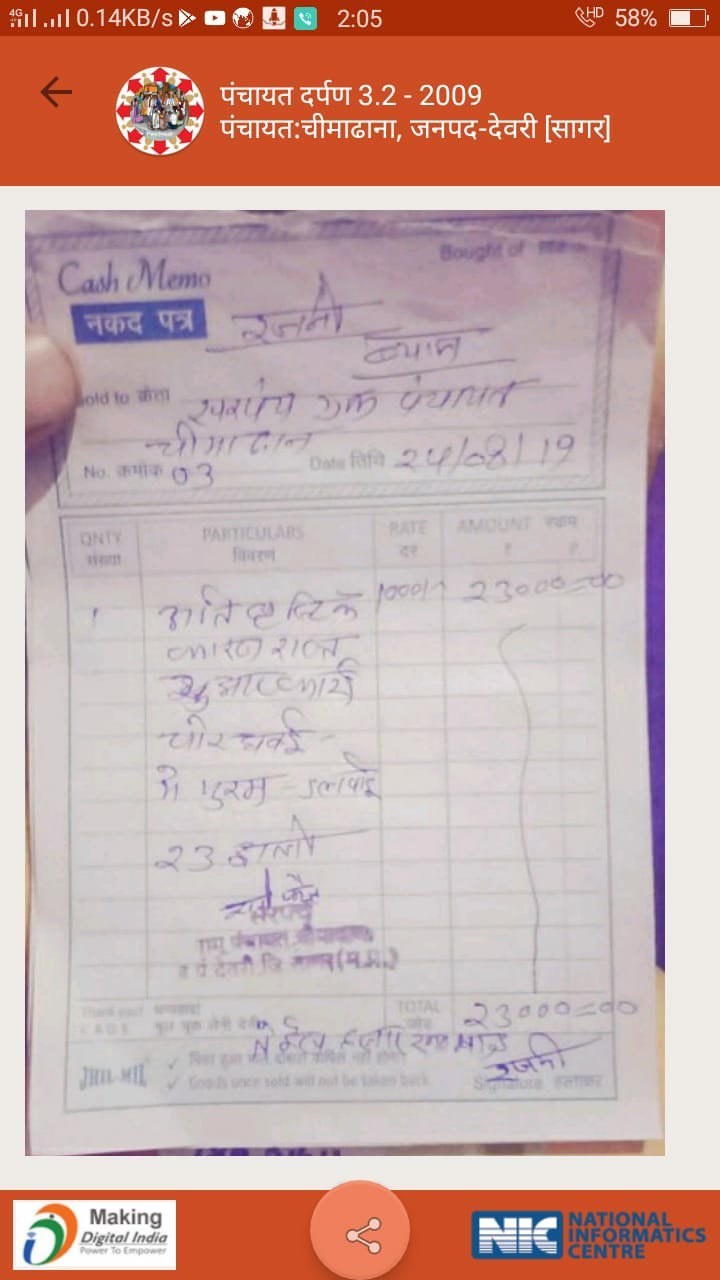 4G 0.14KB/s 2:05 HD 58%
पंचायत दर्पण 3.2 - 2009
पंचायत:चीमाढाना, जनपद-देवरी [सागर]
Bought of
Cash Memo
नकद पत्र रजनी
ब्यान
old to क्रेता सरपंच पंचायत
No. क्रमांक 03 Date तिथि 24/08/19
QNTY संख्या PARTICULARS विवरण RATE दर AMOUNT रकम
1 अतिवृष्टि के 1000/- 23000=00
कारण रास्ता
कार्य
में मुरम डलवाई
23 ट्राली
सरपंच
Thank you! धन्यवाद! TOTAL जोड़ 23000=00
E.& O.E. भूल चूक लेनी देनी
तेईस हजार
JHIL-MIL ✓ बिका हुआ माल वापिस नहीं होगा
रजनी
✓ Goods once sold will not be taken back. Signature हस्ताक्षर
Making
Digital India
Power To Empower
NIC NATIONAL
INFORMATICS
CENTRE